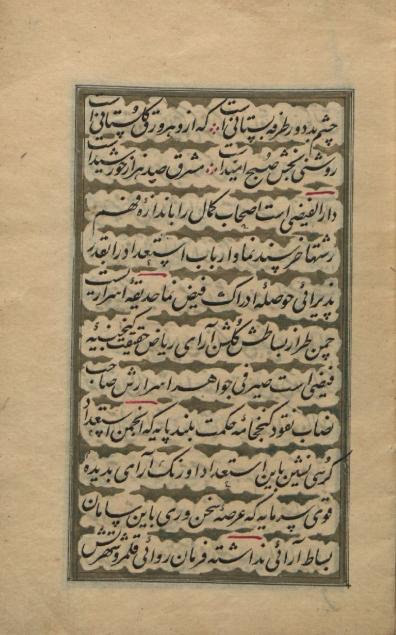 چشم بد دور طرفه بستانی است که از و هر ورق گلستانی است
روشنی بخش صبح امید است مشرق صد هزار خورشید است
دار الفیضی است اصحاب کمال را باندازهٔ فهم
رشتها خرسند نما و ارباب استعداد را بقدر
پذیرائی حوصله ادراک فیض نما حدیقه اسرار یست
چمن طراز بساطش گلشن آرای ریاض حقیقت گنجینهٔ
فیضی است صیرفی جواهر اسرارش صاحب
نصاب نقود گنجخانه حکمت بلند پایه که انجمن استعداد
کرسی نشین باین استعداد اورنگ آرای ندیده
قوی سرمایه که عرصهٔ سخن وری باین سامان
بساط آرائی نداشته فرمان روائی قلمرو شهرتش